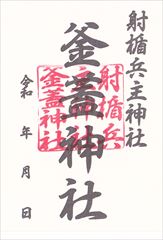 射楯兵主神社
釜蓋神社
射楯兵
主神社
釜蓋神社
令和　年　月　日